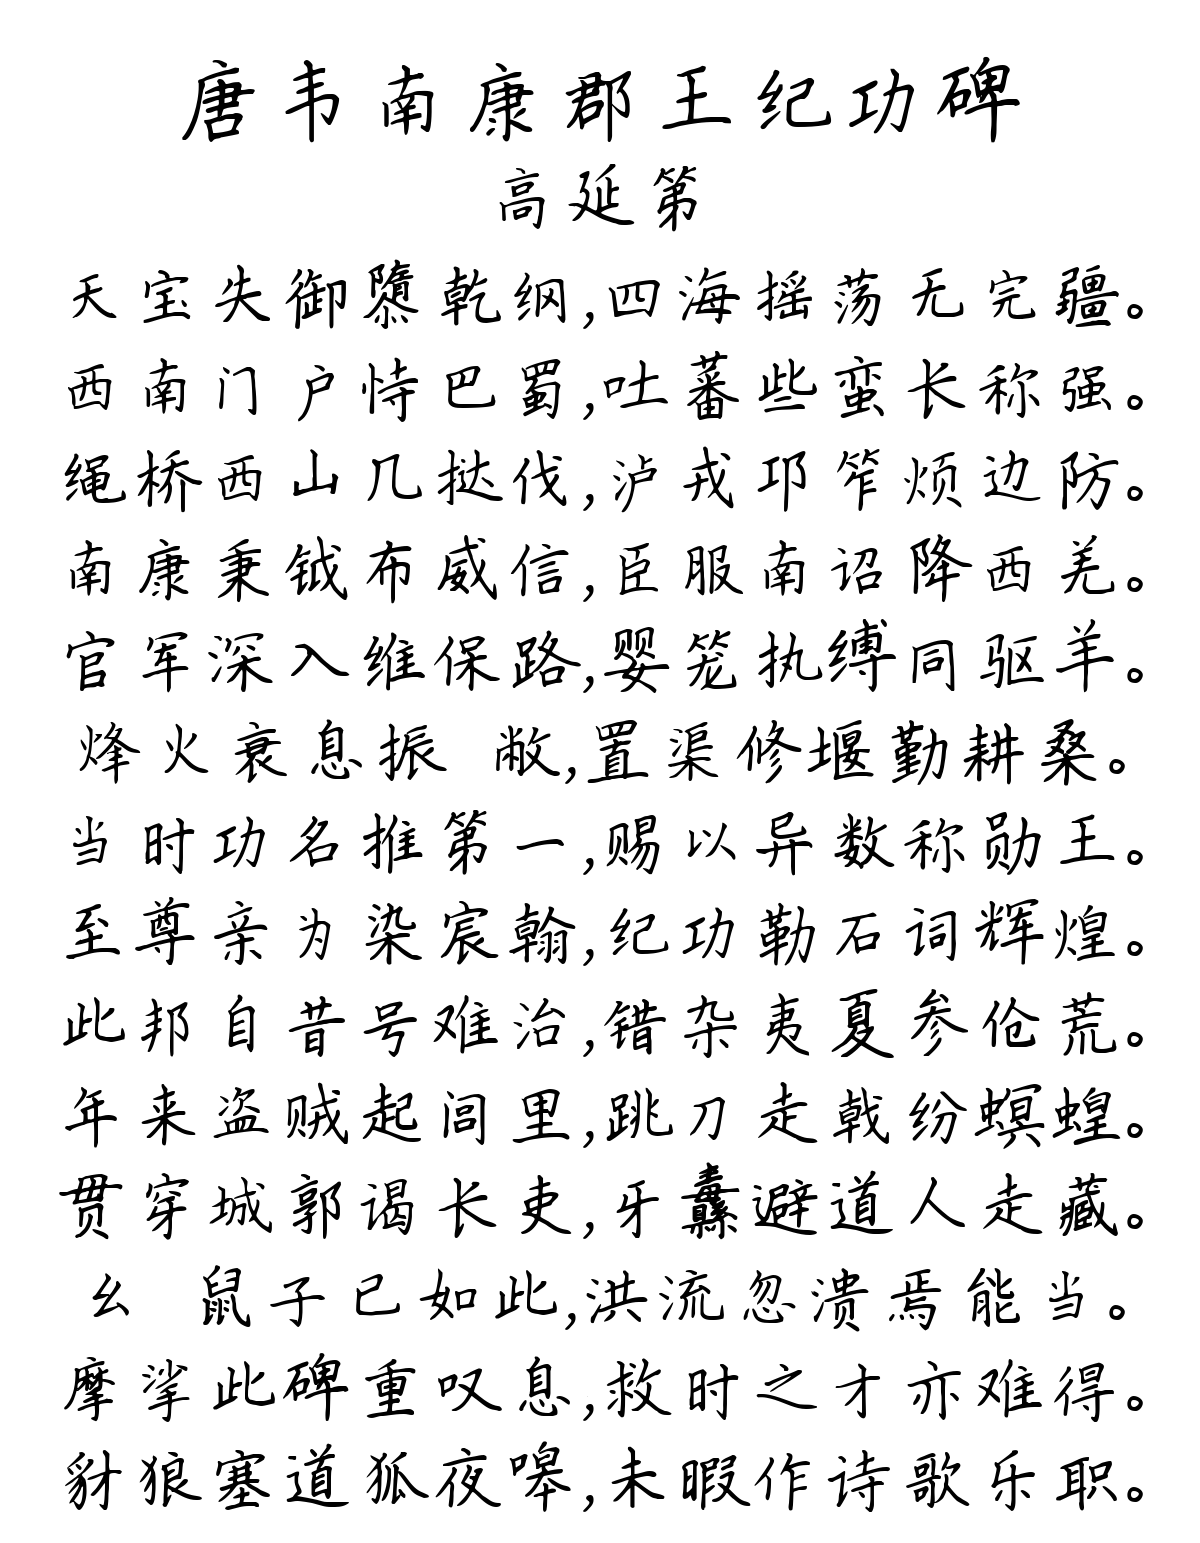 唐韦南康郡王纪功碑
高延第
天宝失御隳乾纲,四海摇荡无完疆。
西南门户恃巴蜀,吐蕃些蛮长称强。
绳桥西山几挞伐,泸戎邛笮烦边防。
南康秉钺布威信,臣服南诏降西羌。
官军深入维保路,婴笼执缚同驱羊。
烽火衰息振 敝,置渠修堰勤耕桑。
当时功名推第一,赐以异数称勋王。
至尊亲为染宸翰,纪功勒石词辉煌。
此邦自昔号难治,错杂夷夏参伧荒。
年来盗贼起闾里,跳刀走戟纷螟蝗。
贯穿城郭谒长吏,牙纛避道人走藏。
幺 鼠子已如此,洪流忽溃焉能当。
摩挲此碑重叹息,救时之才亦难得。
豺狼塞道狐夜嗥,未暇作诗歌乐职。